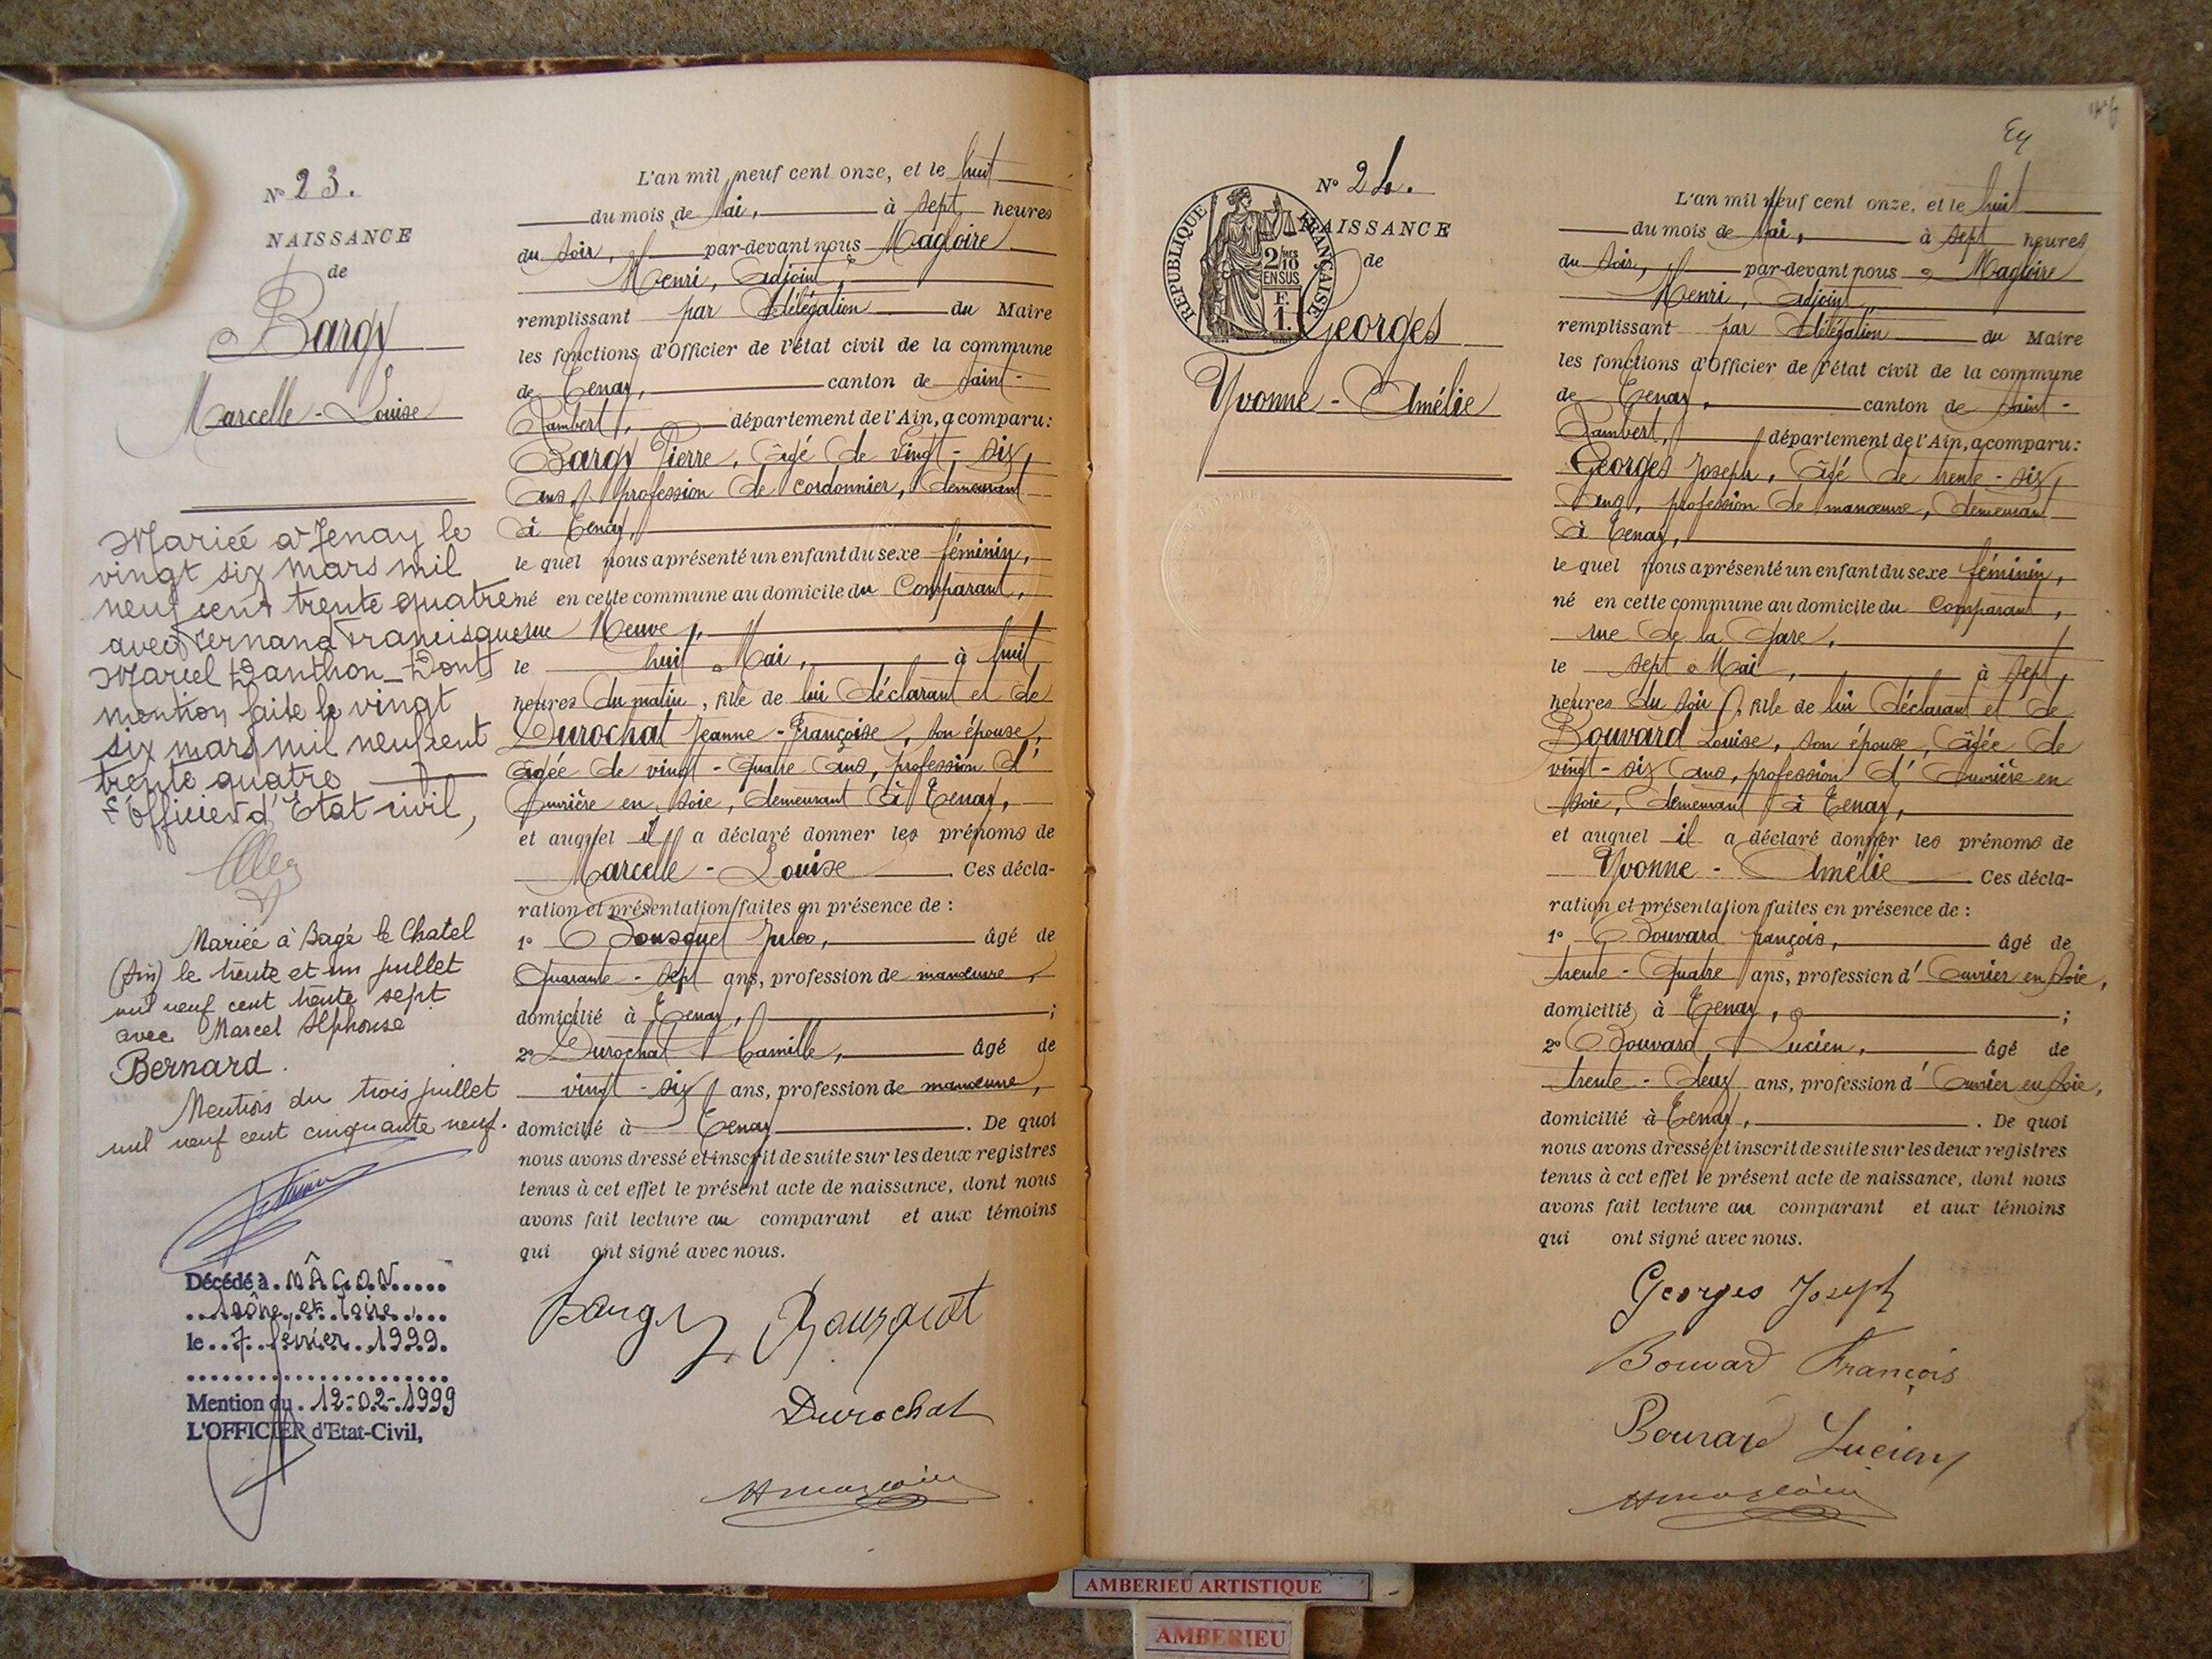 N° 23.
NAISSANCE
de
Bargy
Marcelle - Louise
Mariée à Tenay le
vingt six mars mil
neuf cent trente quatre
avec Fernand Francisque
Marcel Danthon_ Dont
mention faite le vingt
six mars mil neuf cent
trente quatre
L'officier d'Etat civil,
Mariée à Bagé le Chatel
(Ain) le trente et un juillet
mil neuf cent trente sept
avec Marcel Alphonse
Bernard.
Mention du trois juillet
mil neuf cent cinquante neuf.
Décédé à MÂCON
Saône et Loire
le 7 février 1999.
Mention du 12-02-1999
L'OFFICIER d'Etat-Civil,
L'an mil neuf cent onze, et le huit
du mois de Mai, à sept heures
du soir, par-devant nous Magloire
Henri, Adjoint,
remplissant par Délégation du Maire
les fonctions d'Officier de l'état civil de la commune
de Tenay, canton de Saint-
Rambert, département de l'Ain, a comparu:
Bargy Pierre, âgé de vingt-six
ans, profession de cordonnier, demeurant
à Tenay,
le quel nous a présenté un enfant du sexe féminin,
né en cette commune au domicile du Comparant,
rue Neuve,
le huit Mai, à huit
heures du matin, fille de lui déclarant et de
Durochat Jeanne-Françoise, son épouse,
âgée de vingt-quatre ans, profession d'
Ouvrière en soie, demeurant à Tenay,
et auquel il a déclaré donner les prénoms de
Marcelle - Louise Ces décla-
ration et présentation faites en présence de :
1° Bousquet Jules, âgé de
quarante-sept ans, profession de manœuvre,
domicilié à Tenay, ;
2° Durochat Camille, âgé de
vingt-six ans, profession de manœuvre,
domicilié à Tenay . De quoi
nous avons dressé et inscrit de suite sur les deux registres
tenus à cet effet le présent acte de naissance, dont nous
avons fait lecture au comparant et aux témoins
qui ont signé avec nous.
Bargy
Durochat
HMagloire
Ey
N° 24.
REPUBLIQUE FRANÇAISE
2/10 EN SUS
F. 1.
NAISSANCE
de
Georges
Yvonne - Amélie
L'an mil neuf cent onze, et le huit
du mois de Mai, à sept heures
du soir, par-devant nous Magloire
Henri, Adjoint,
remplissant par Délégation du Maire
les fonctions d'Officier de l'état civil de la commune
de Tenay, canton de Saint-
Rambert, département de l'Ain, a comparu:
Georges Joseph, âgé de trente-six
ans, profession de manœuvre, demeurant
à Tenay,
le quel nous a présenté un enfant du sexe féminin,
né en cette commune au domicile du Comparant,
rue de la Gare,
le sept Mai, à sept
heures du soir, fille de lui déclarant et de
Bouvard Louise, son épouse, âgée de
vingt-six ans, profession d'Ouvrière en
soie, demeurant à Tenay,
et auquel il a déclaré donner les prénoms de
Yvonne - Amélie Ces décla-
ration et présentation faites en présence de :
1° Bouvard François, âgé de
trente-quatre ans, profession d'Ouvrier en soie,
domicilié à Tenay, ;
2° Bouvard Lucien, âgé de
trente-deux ans, profession d'Ouvrier en soie,
domicilié à Tenay, . De quoi
nous avons dressé et inscrit de suite sur les deux registres
tenus à cet effet le présent acte de naissance, dont nous
avons fait lecture au comparant et aux témoins
qui ont signé avec nous.
Georges Joseph
Bouvard François
Bouvard Lucien
HMagloire
AMBERIEU ARTISTIQUE
AMBERIEU